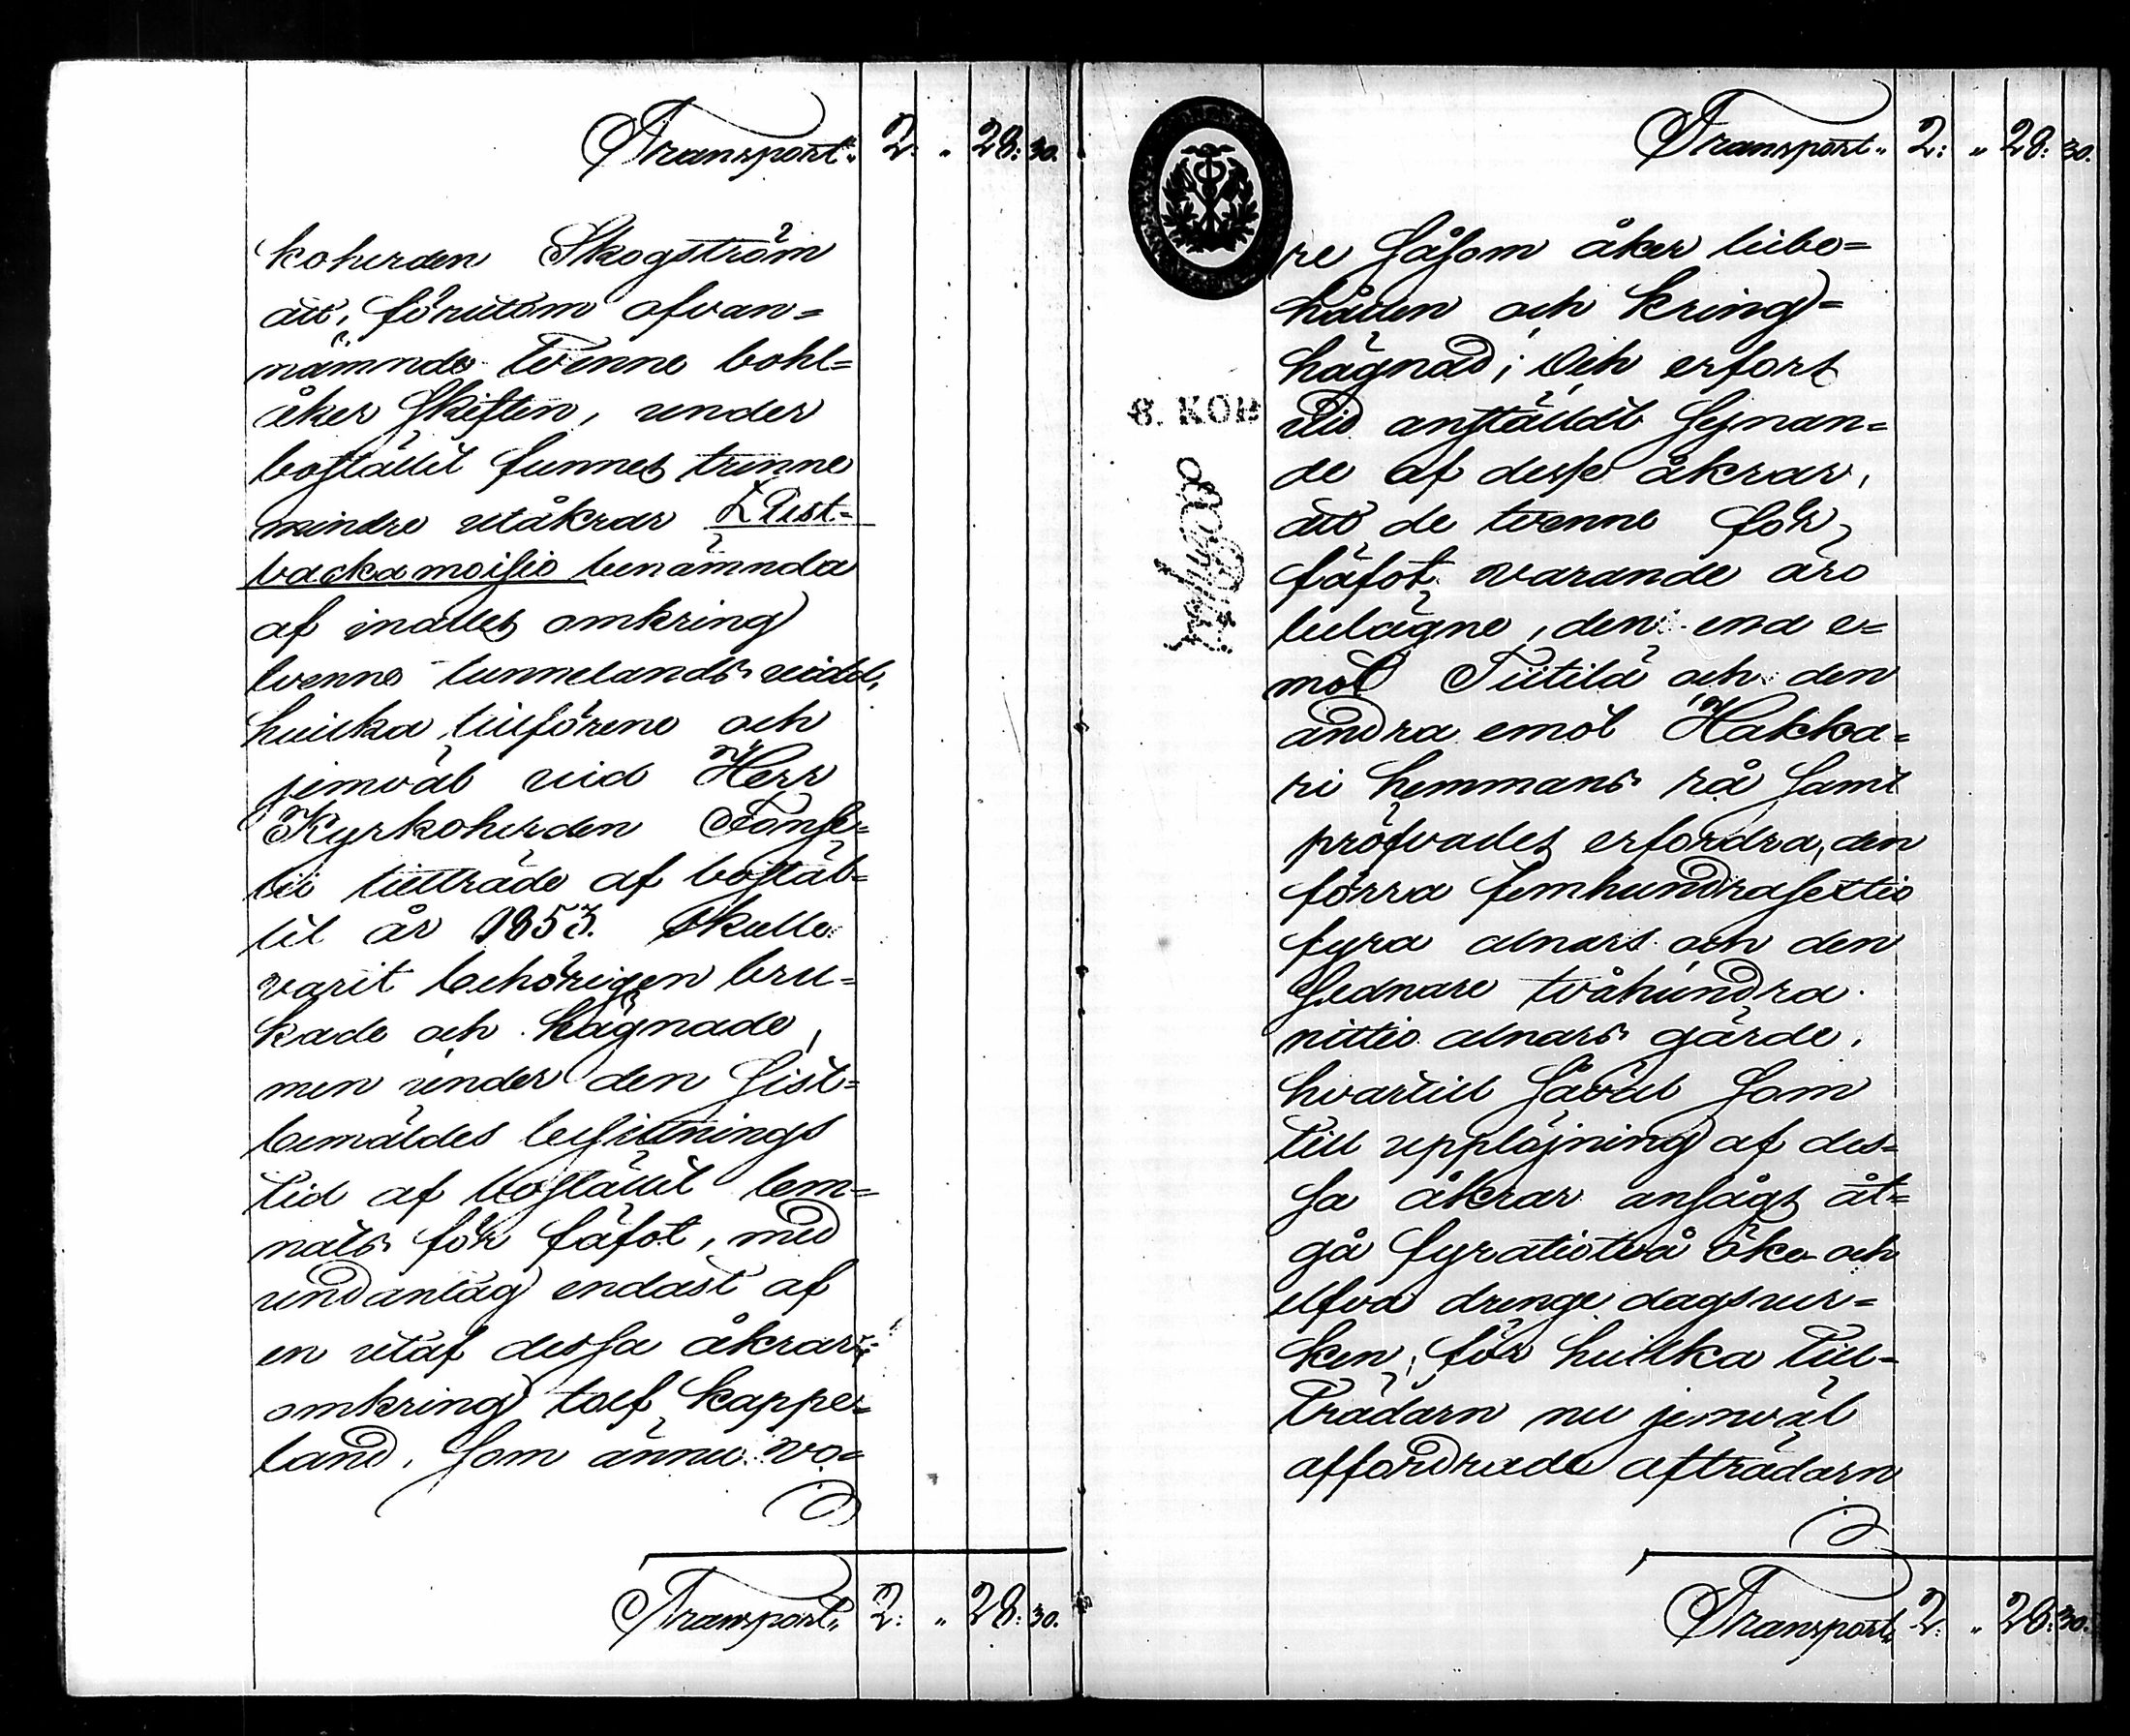 Transport. 2. " 28: 30.
koherden Skogström
att, förutom ofvan=
nämnde tvenne bohl=
åker skiften, under
boställit funnes trenne
mindre utåkrar
backamoisio benämnda
af inalles omkring
tvenne tunnelands vidd,
hvilka tillförene och
jemväl vid Herr
Kyrkoherden
tillträde af boställ=
lit år 1853. skulle
varit behörigen bru=
kade och hägnade,
men under den sist=
bemäldes besittnings
tid af boställit lem=
nats för fäfot, med
undantag endast af
en utaf dessa åkrar
omkring tolf kappe=
land, som ännu vo=
Transport. 2: " 28: 30.
Transport. 2: " 28: 30.
re såsom åker bibe=
hållen och kring=
hägnad; Och erfors
vid anstäldt synan=
de af desse åkrar,
att de tvenne för
fäfot varande äro
belägne, den ena e=
mot Tiitilä och den
andra emot Hakka=
ri hemmans rå samt
pröfvades erfordra, den
förra femhundrasextio
fyra alnars och den
sednare tvåhundra
nittio alnars gärde,
hvartill såväl som
till upplöjning af des=
sa åkrar ansågs åt=
gå fyratiotvå öke och
elfva drenge dagsver=
ken, för hvilka till=
trädarn nu jemväl
affordrade afträdarn
Transport. 2: " 28: 30.
8. KOP